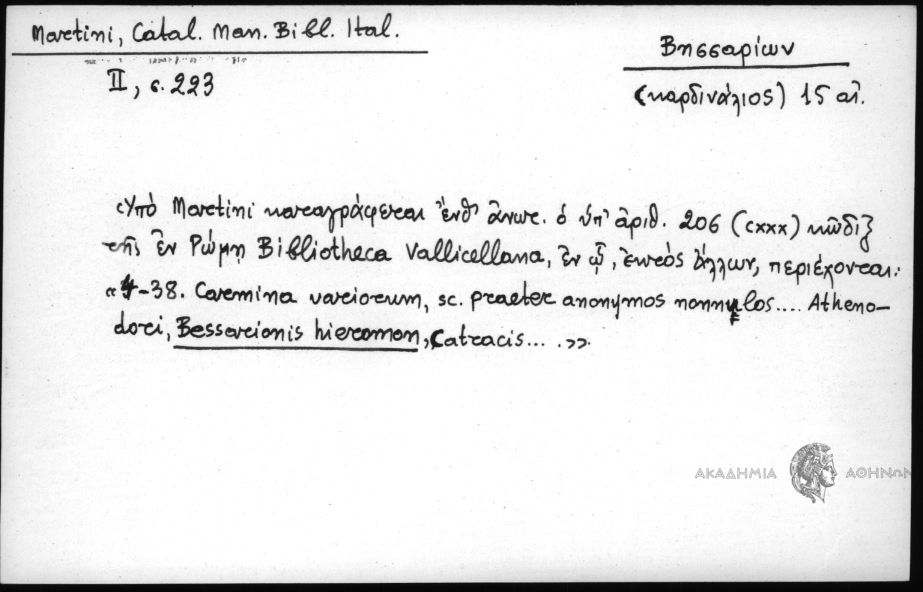 Martini, Catal. Man. Bibl. Ital.
II, σ. 223
Βησσαρίων
(καρδινάλιος) 15 αἰ.
Ὑπὸ Martini καταγράφεται ἔνθ' ἄνωτ. ὁ ὑπ' ἀριθ. 206 (CXXX) κῶδιξ
τῆς ἐν Ρώμῃ Bibliotheca Vallicellana, ἐν ᾧ, ἐκτὸς ἄλλων, περιέχονται:
«4-38. Carmina variorum, sc. praeter anonymos nonnulos.... Atheno-
dori, Bessarionis hieromon, Catracis... .».
ΑΚΑΔΗΜΙΑ ΑΘΗΝΩΝ